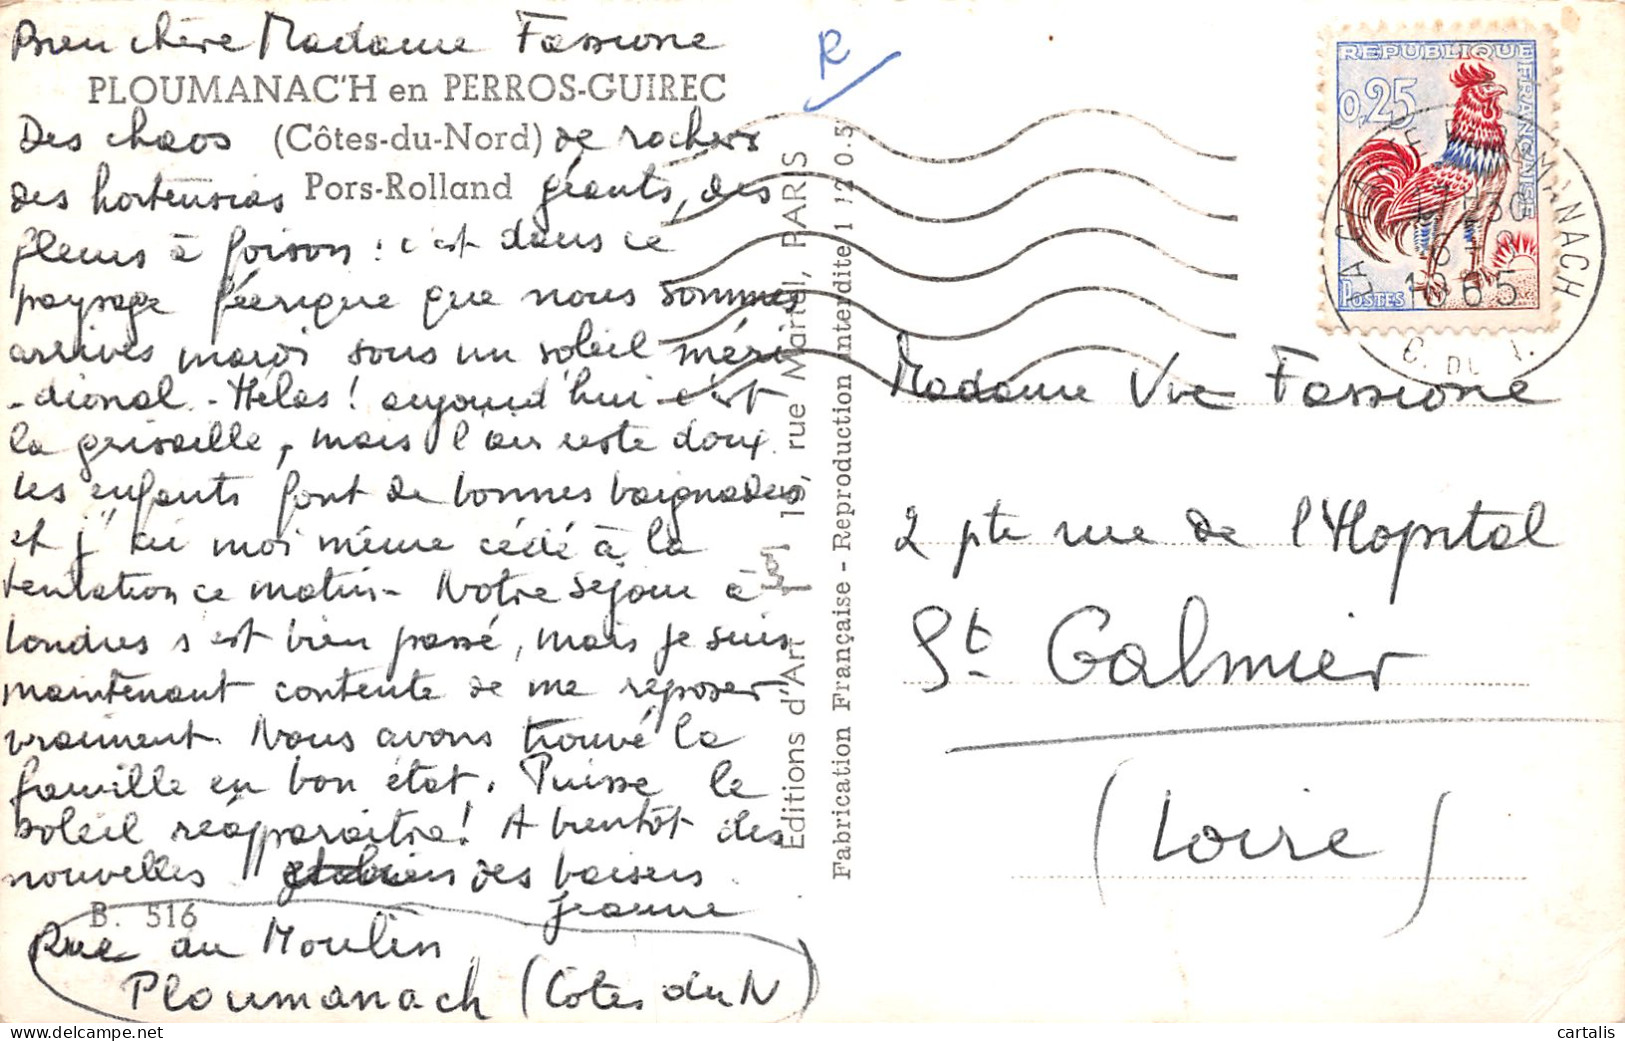 Bien chère Madame Fassione
PLOUMANAC'H en PERROS-GUIREC
(Côtes-du-Nord)
Pors-Rolland
Des chaos de rochers
géants, des
des hortensias
fleurs à foison : c'est dans ce
paysage féerique que nous sommes
arrivés mardi sous un soleil méri
-dional - Hélas ! aujourd'hui c'est
la grisaille, mais l'air reste doux.
Les enfants font de bonnes baignades
et j'ai moi même cédé à la
tentation ce matin - Notre séjour à
Londres s'est bien passé, mais je suis
maintenant contente de me reposer
vraiment. Nous avons trouvé la
famille en bon état. Puisse le
soleil réapparaître ! A bientôt des
nouvelles des baisers
Jeanne
B. 516
Rue du Moulin
Ploumanach (Côtes du N)
Editions d'Art 18, rue Martel, PARIS
Fabrication Française - Reproduction interdite 1 120.5
R
REPUBLIQUE FRANÇAISE
0,25
POSTES
1965
C. DU N.
Madame Vve Fassione
2 pte rue de l'Hopital
St Galmier
(Loire)
cartalis